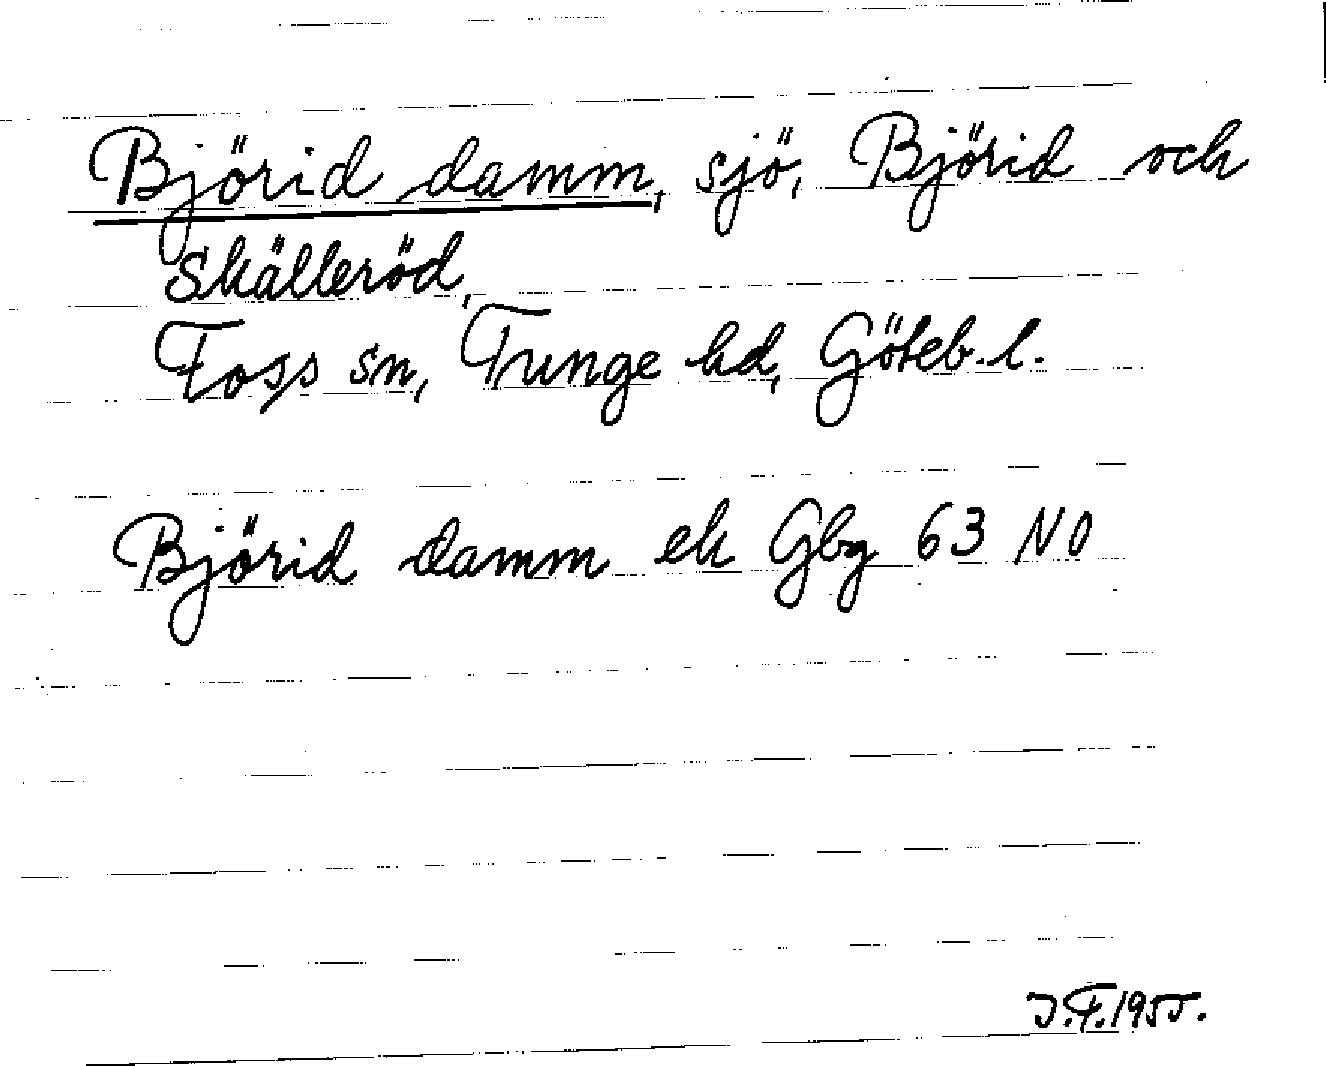 Björid damm, sjö, Björid och
Skälleröd,
Foss sn, Tunge hd, Göteb. l.
Björid damm ek Gbg 63 NO
J.F. 1955.